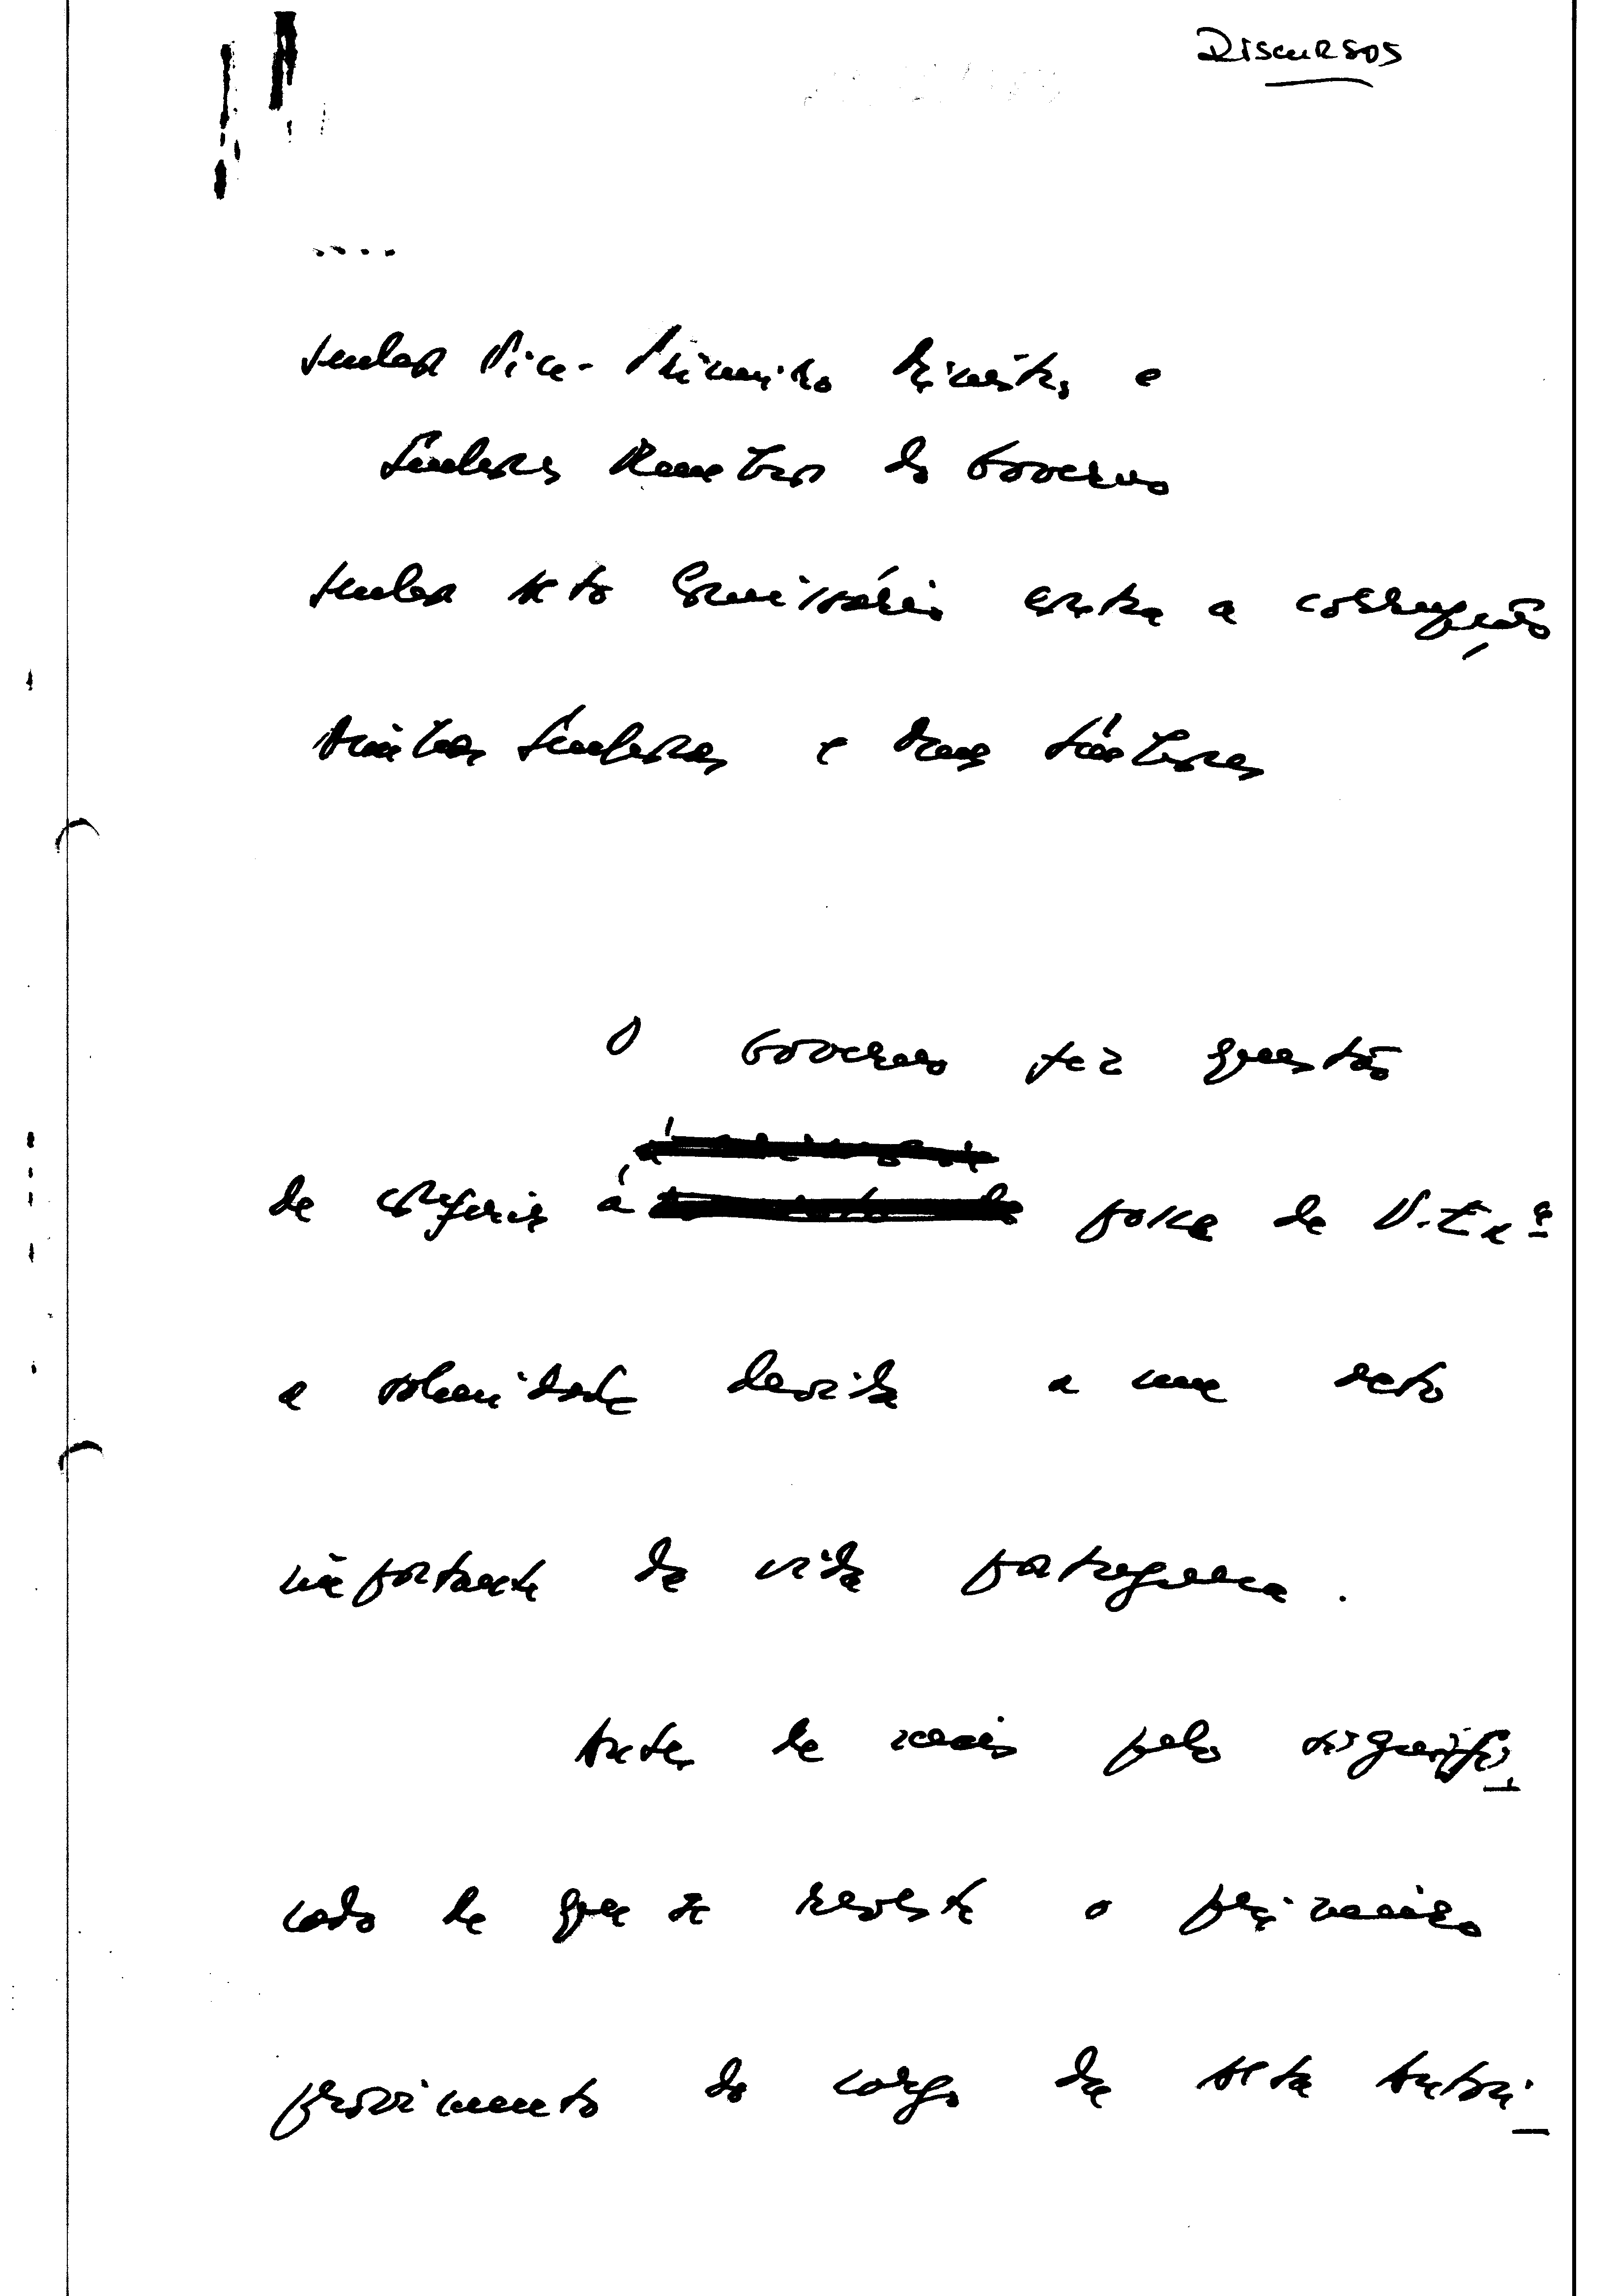 Discursos
....
Senhor Vice-Primeiro Ministro e
Senhores Membros do Governo
Senhor Alto Comissário contra a corrupção
Minhas Senhoras e meus Senhores
O Governo fez questão
de conferir à posse de V. Exª
a solenidade devida a um acto
importante da vida portuguesa.
Antes de mais pelo signifi
cado de que se reveste o primeiro
provimento do cargo da Alta Autori